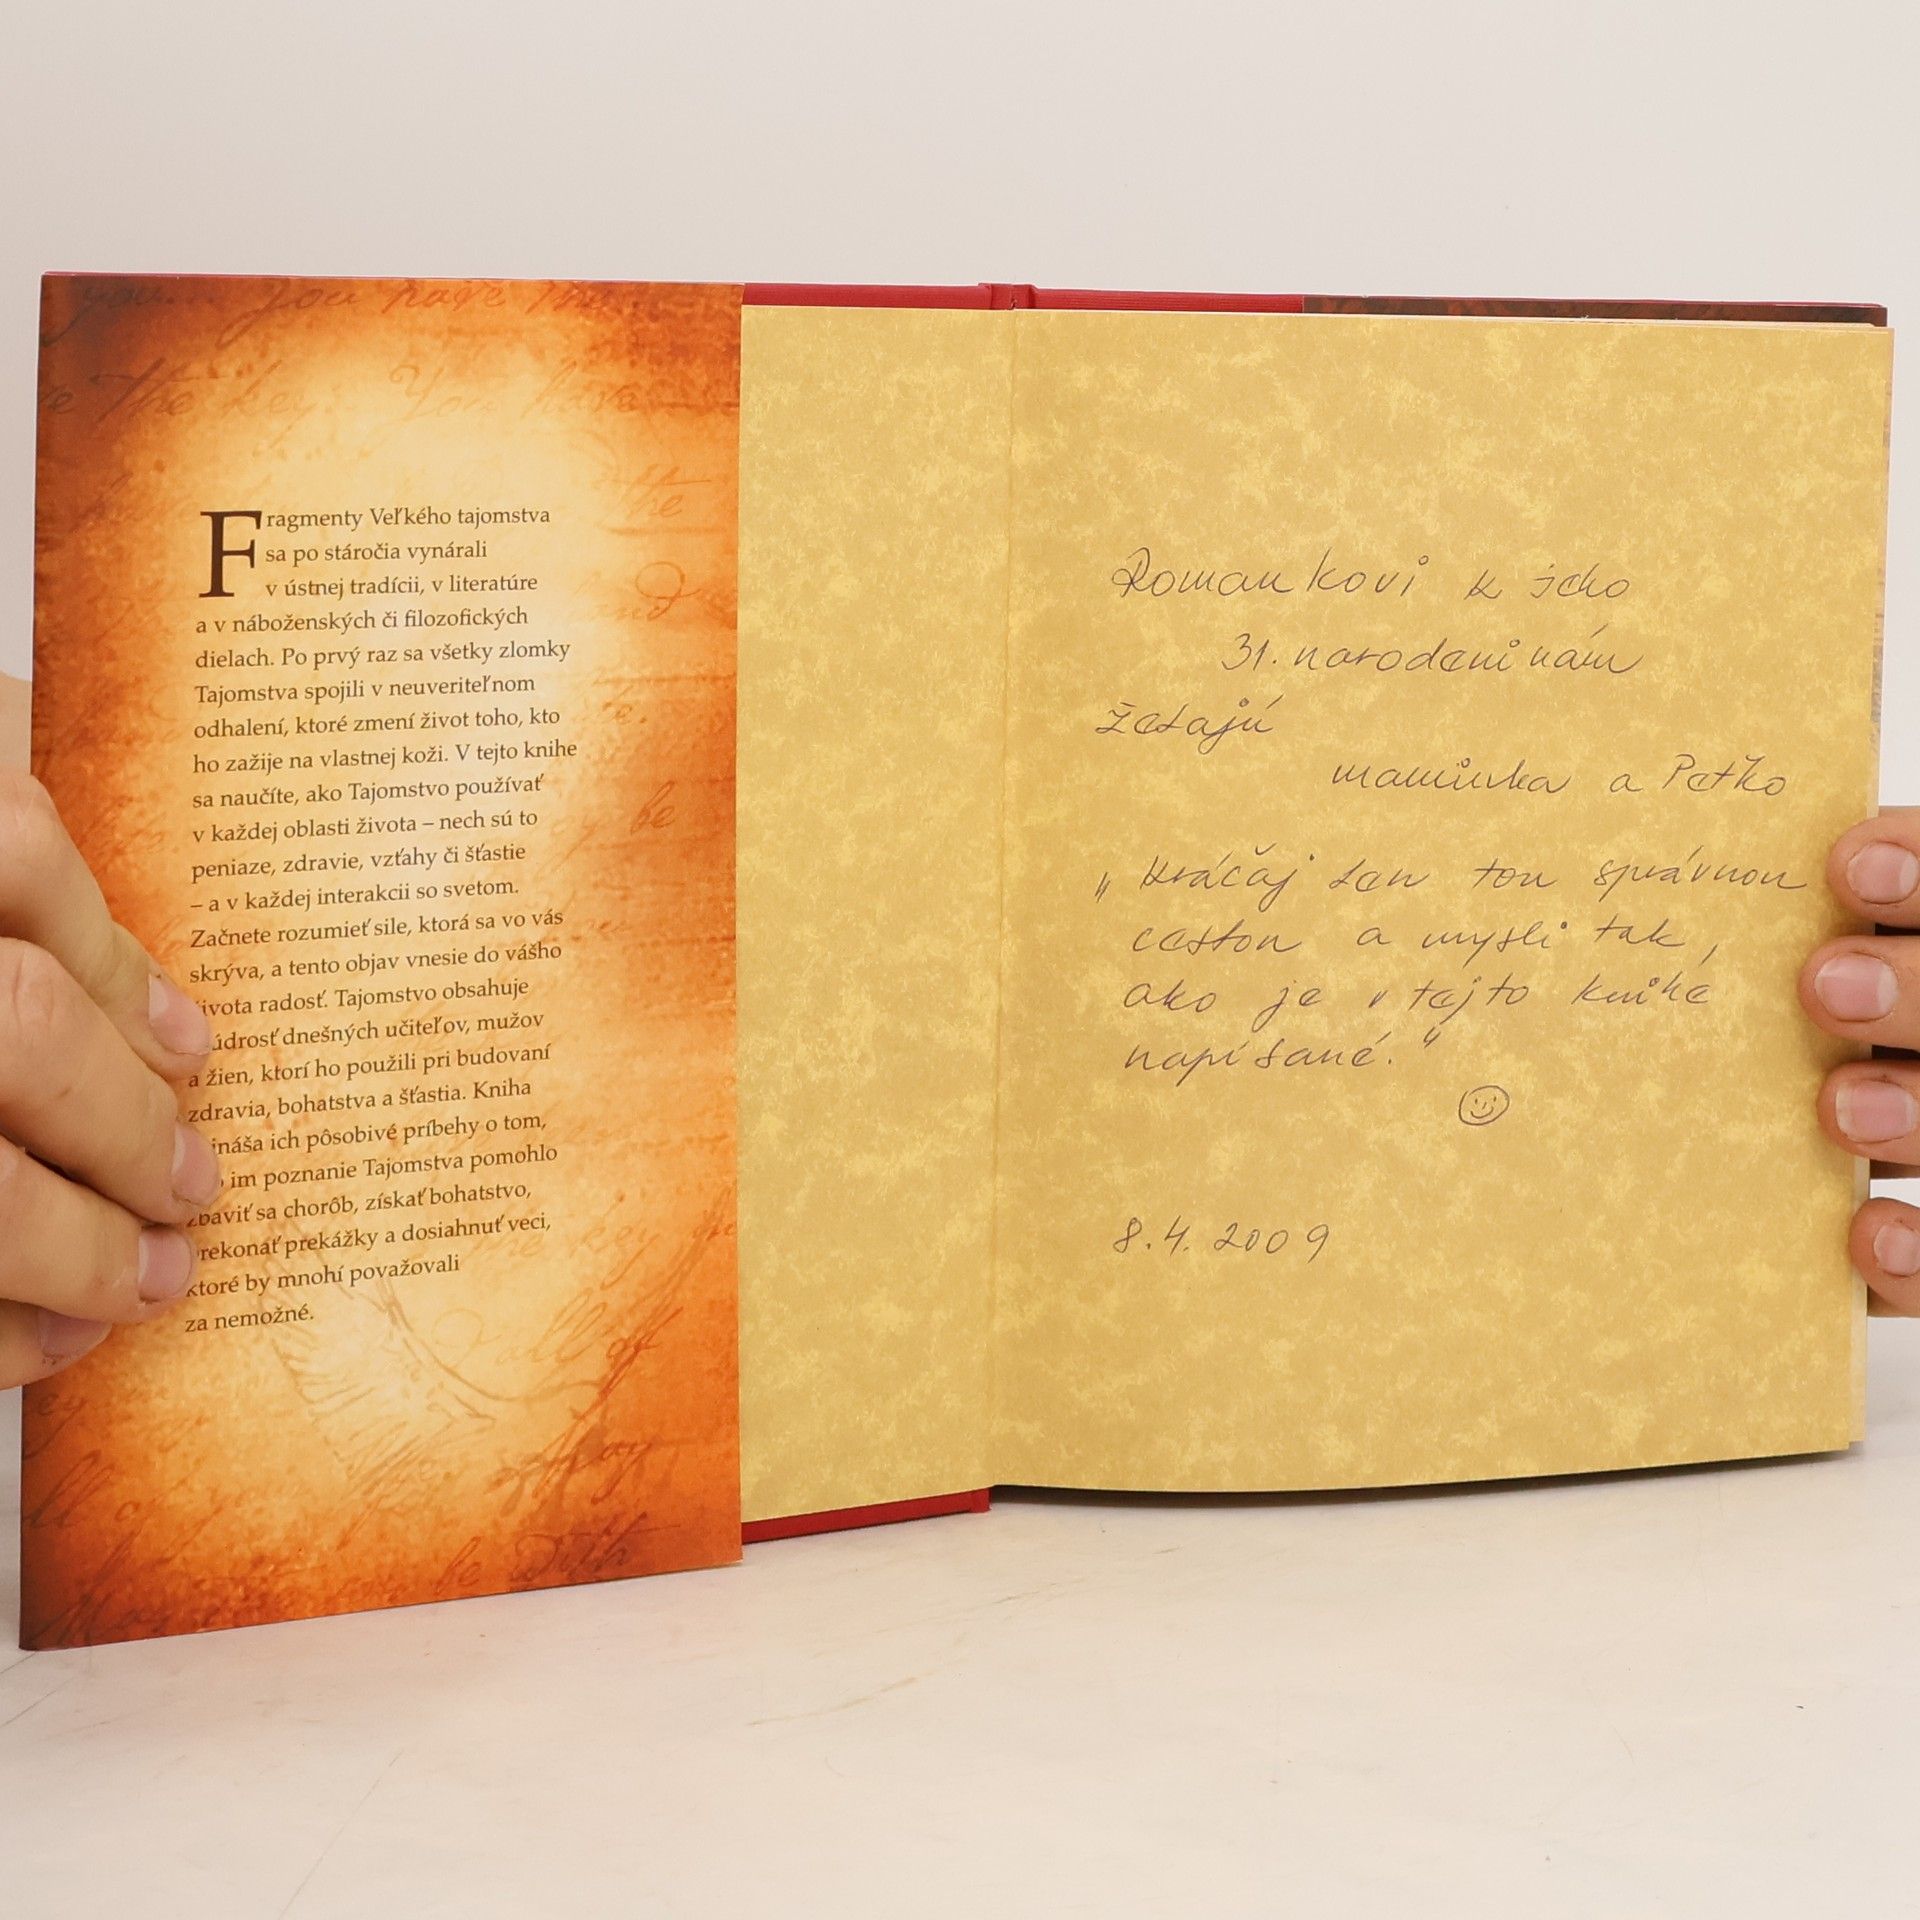 Fragmenty Veľkého tajomstva
sa po stáročia vynárali
v ústnej tradícii, v literatúre
a v náboženských či filozofických
dielach. Po prvý raz sa všetky zlomky
Tajomstva spojili v neuveriteľnom
odhalení, ktoré zmení život toho, kto
ho zažije na vlastnej koži. V tejto knihe
sa naučíte, ako Tajomstvo používať
v každej oblasti života – nech sú to
peniaze, zdravie, vzťahy či šťastie
– a v každej interakcii so svetom.
Začnete rozumieť sile, ktorá sa vo vás
skrýva, a tento objav vnesie do vášho
života radosť. Tajomstvo obsahuje
múdrosť dnešných učiteľov, mužov
a žien, ktorí ho použili pri budovaní
zdravia, bohatstva a šťastia. Kniha
prináša ich pôsobivé príbehy o tom,
im poznanie Tajomstva pomohlo
zbaviť sa chorôb, získať bohatstvo,
prekonať prekážky a dosiahnuť veci,
ktoré by mnohí považovali
za nemožné.
Romankovi k jeho
31. narodeninám
želajú
maminka a Peťko
„Kráčaj len tou správnou
cestou a mysli tak,
ako je v tejto knihe
napísané."
8.4.2009